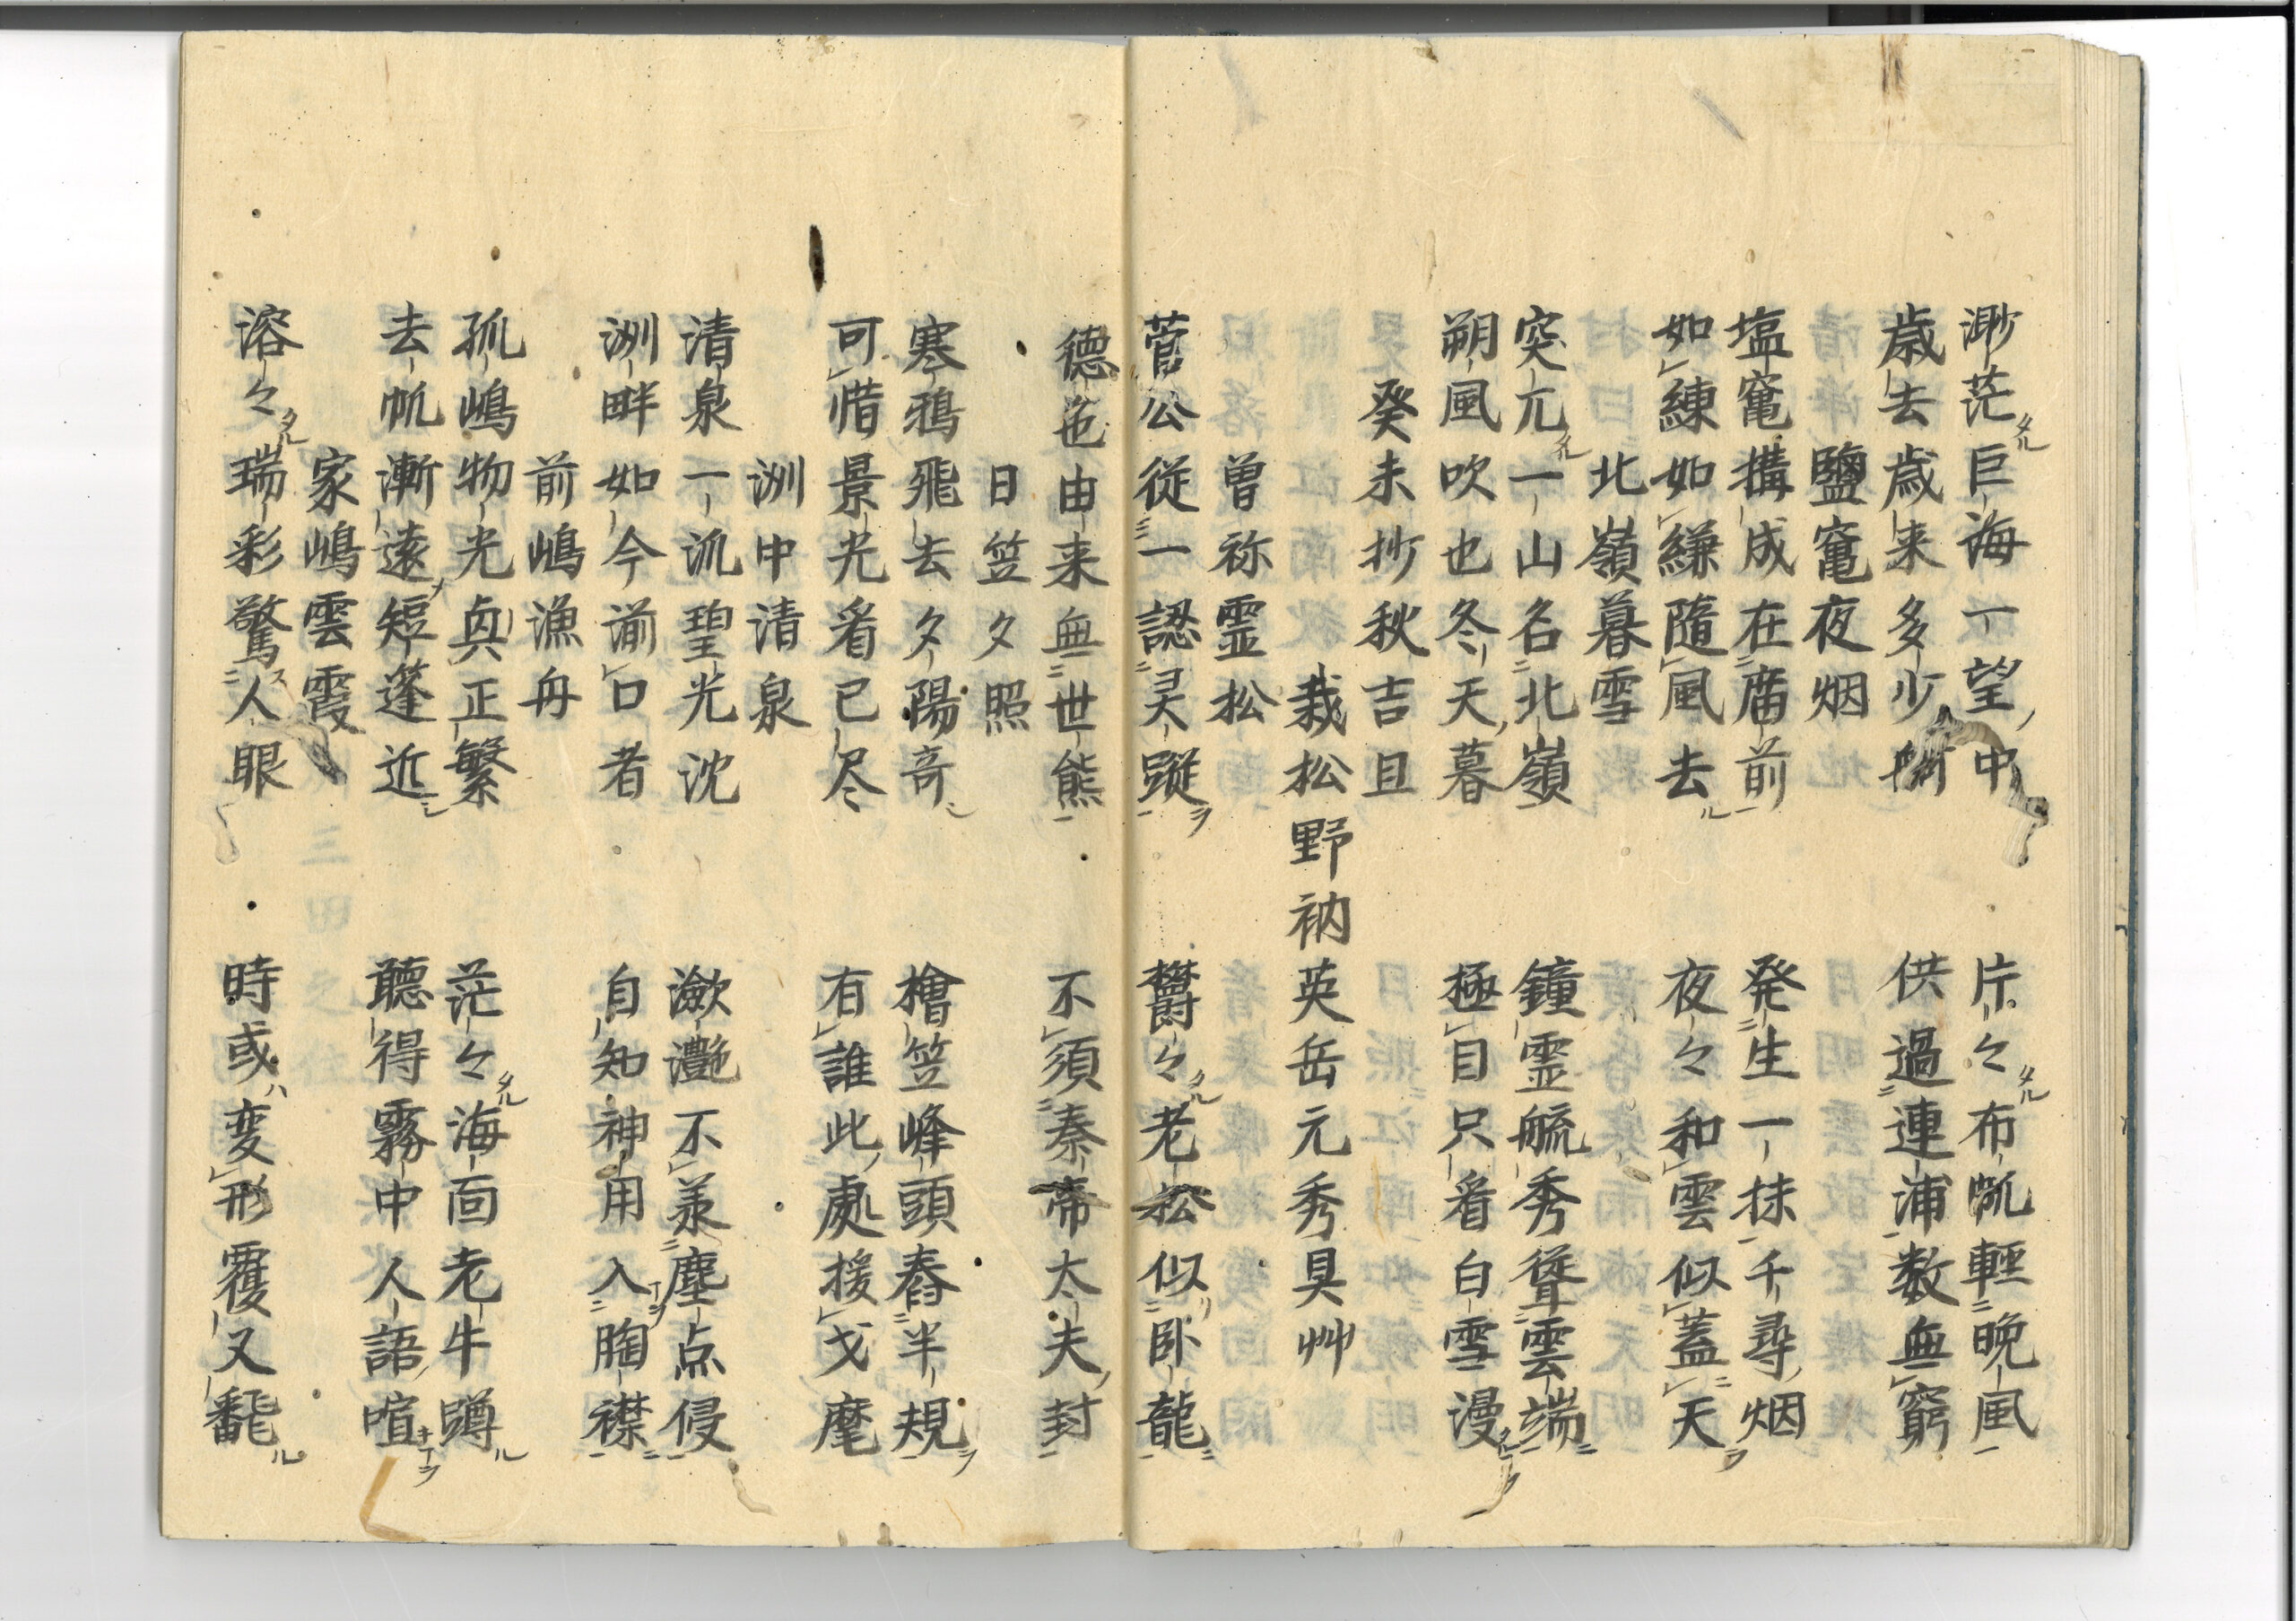 渺茫巨海一望中　片々布帆軽晩風
歳去歳来多少　供過連浦数無窮
鹽竃夜烟
塩竃構成在廟前　発生一抹千尋烟
如練如縑随風去　夜々和雲似蓋天
北嶺暮雪
突兀一山名北嶺　鐘霊毓秀聳雲端
朔風吹也冬天暮　極目只看白雪漫
癸未抄秋吉旦
栽松野衲英岳元秀具艸
曽祢霊松
菅公従一認灵蹤　欝々老松似卧龍
徳色由来無世熊　不須秦帝太夫封
日笠夕照
寒鴉飛去夕陽奇　檜笠峰頭舂半規
可惜景光看已尽　有誰此處援戈麾
洲中清泉
清泉一派瑩光沈　瀲灔不羕塵点侵
洲畔如今湔口者　自知神用入胸襟
前嶋漁舟
孤嶋物光真正繁　茫々海面老牛蹲
去帆漸遠短蓬近　聴得霧中人語喧
家嶋雲霞
溶々瑞彩驚人眼　時或変形覆又飜